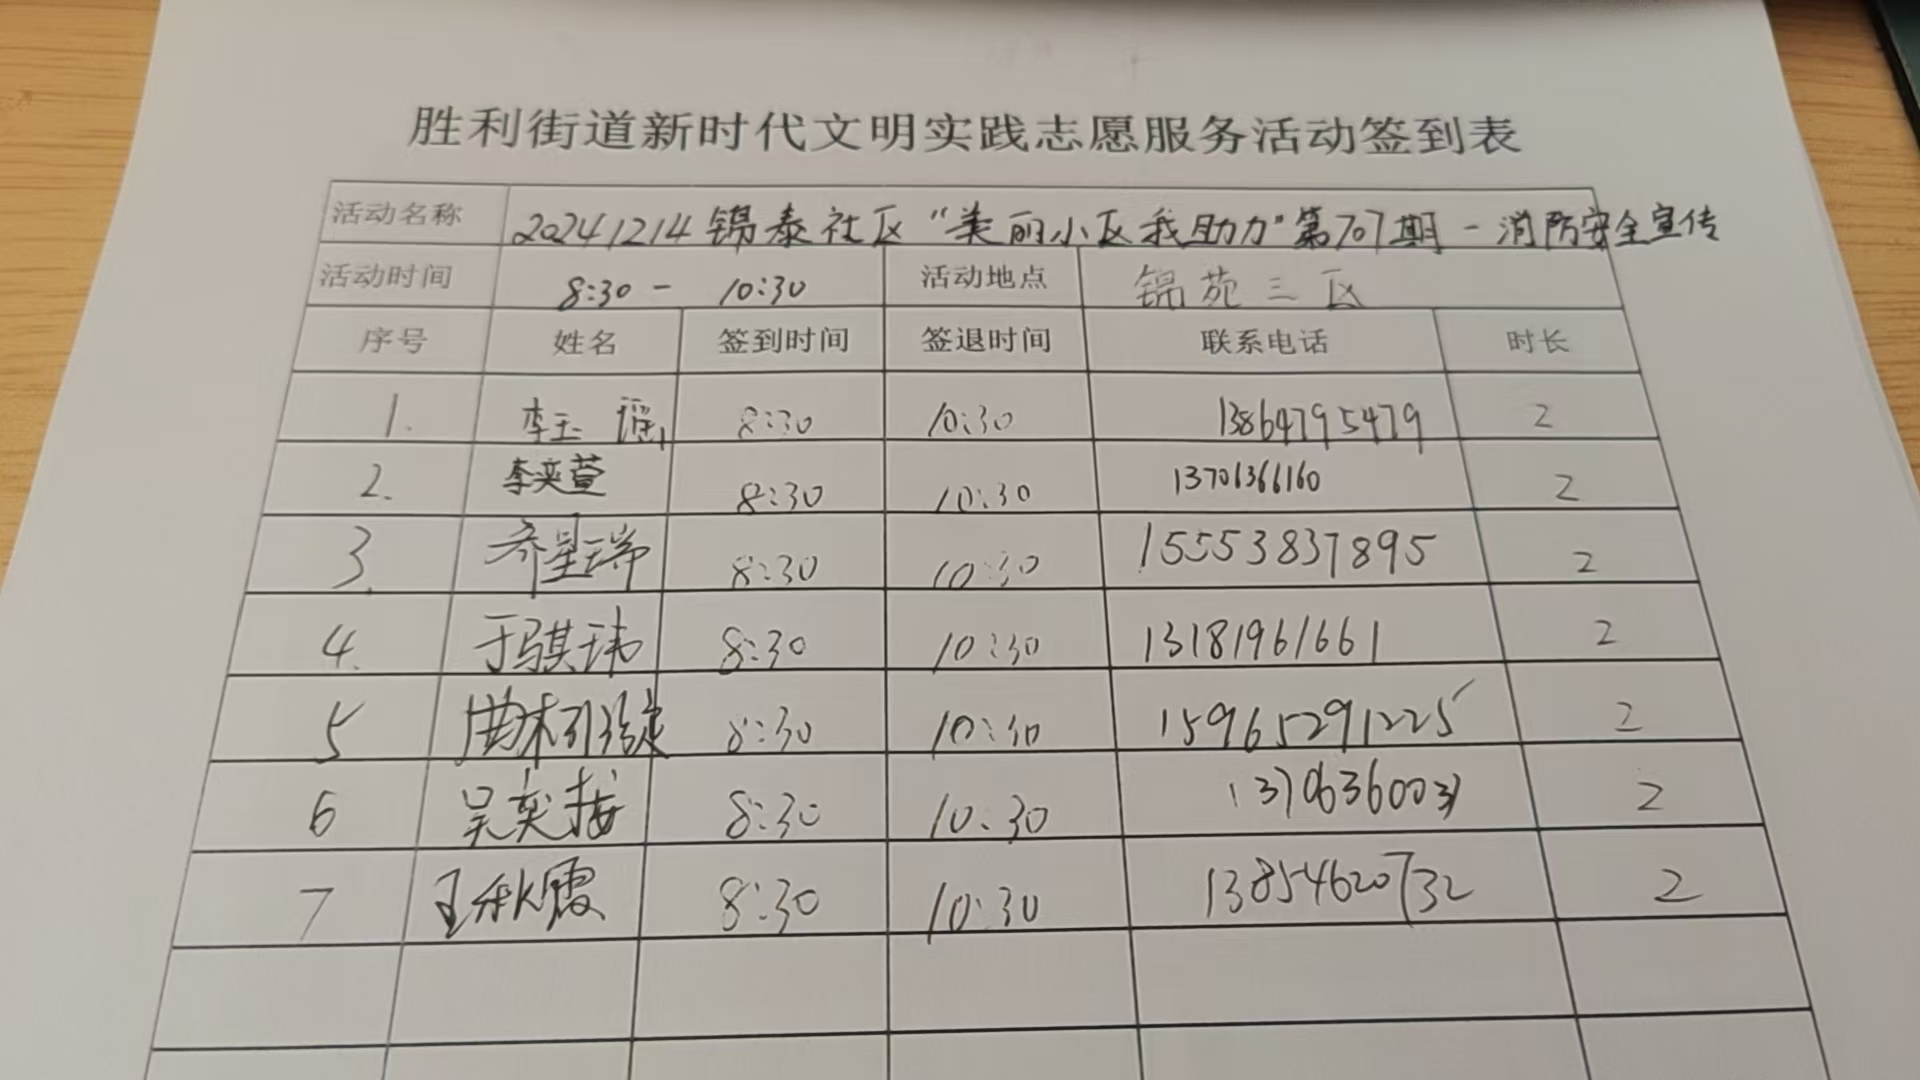 胜利街道新时代文明实践志愿服务活动签到表
活动名称 20241214锦泰社区“美丽小区我助力”第707期-消防安全宣传
活动时间 8:30 - 10:30 活动地点 锦苑三区
序号 姓名 签到时间 签退时间 联系电话 时长
1. 李玉瑶 8:30 10:30 13864795479 2
2. 李奕萱 8:30 10:30 13706366160 2
3. 乔星瑞 8:30 10:30 15553837895 2
4. 于骐玮 8:30 10:30 13181961661 2
5 8:30 10:30 15965291225 2
6 吴奕 8:30 10:30 2
7 王秋霞 8:30 10:30 13854620732 2